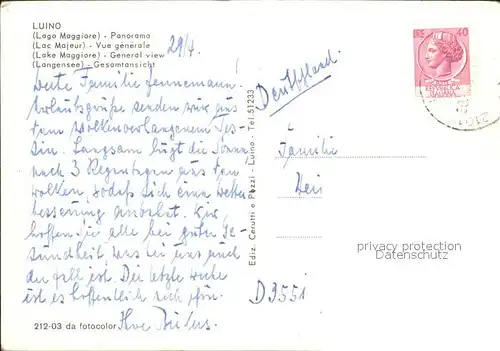 LUINO
(Lago Maggiore) - Panorama
(Lac Majeur) - Vue générale
(Lake Maggiore) - General view
(Langensee) - Gesamtansicht
29/4.
Werte Familie Jennemann!
Urlaubsgrüße senden wir aus
dem Wolkenverhangenem Tes-
sin. Langsam lugt die Sonne
nach 3 Regentagen aus den
Wolken, sodaß sich eine Wetter
besserung anbahnt. Wir
hoffen Sie alle bei guter Ge-
sundheit, was bei uns auch
der Fall ist. Die letzte Woche
ist es hoffentlich sich schön.
Ihre
212-03 da fotocolor
Ediz. Cerutti e Pozzi - Luino - Tel. 51233
Deutschland.
Familie
D 3551
LIRE 40
REPVBBLICA
ITALIANA
privacy protection
Datenschutz